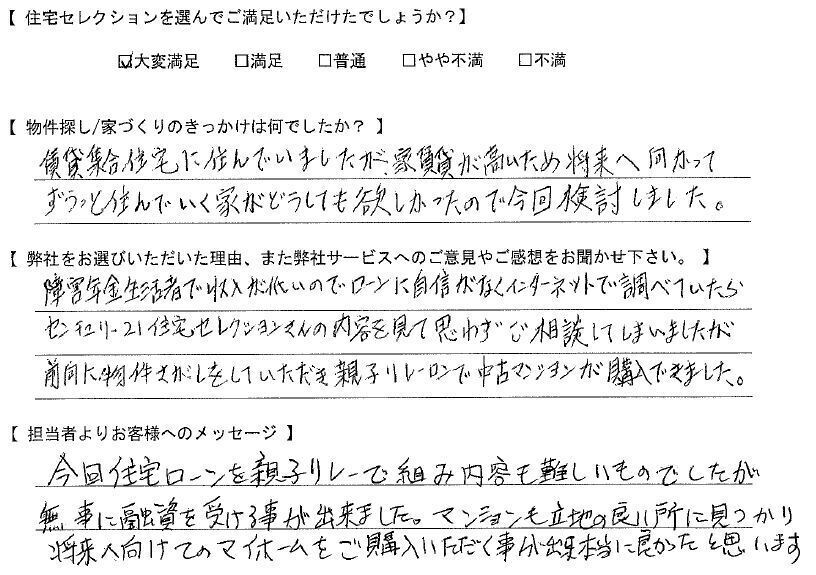 【 住宅セレクションを選んでご満足いただけたでしょうか?】
☑大変満足 □満足 □普通 □やや不満 □不満
【 物件探し/家づくりのきっかけは何でしたか? 】
賃貸集合住宅に住んでいましたが、家賃貸が高いため将来へ向かって
ずうっと住んでいく家がどうしても欲しかったので今回検討しました。
【 弊社をお選びいただいた理由、また弊社サービスへのご意見やご感想をお聞かせ下さい。 】
障害年金生活者で収入が低いのでローンに自信がなくインターネットで調べていたら
センチュリー21住宅セレクションさんの内容を見て思わずご相談してしまいましたが
前向に物件さがしをしていただき親子リレーローンで中古マンションが購入できました。
【 担当者よりお客様へのメッセージ 】
今回住宅ローンを親子リレーで組み内容も難しいものでしたが
無事に融資を受ける事が出来ました。マンションも立地の良い所に見つかり
将来へ向けてのマイホームをご購入いただく事が出来本当に良かったと思います